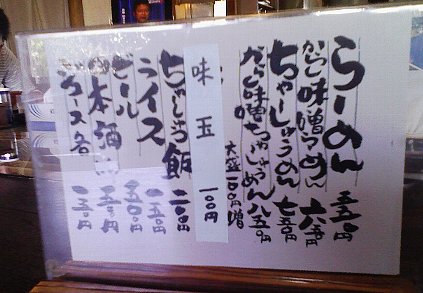 らーめん 五五〇円
からし味噌らーめん 六五〇円
ちゃーしゅうめん 七五〇円
からし味噌ちゃーしゅうめん 八五〇円
大盛一〇〇円増
味玉 一〇〇円
ちゃーしゅう飯 二〇〇円
ライス 一五〇円
ビール 五〇〇円
日本酒
ジュース各 二五〇円